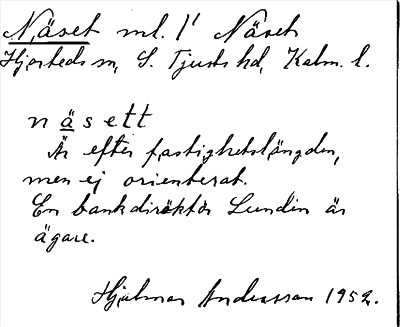 Näset ml. 1' Näset
Hjorteds sn, S. Tjusts hd, Kalm. l.
näsett
Är efter fastighetslängden,
men ej orienterat.
En bankdirektör Lundin är
ägare.
Hjalmar Andersson 1952.